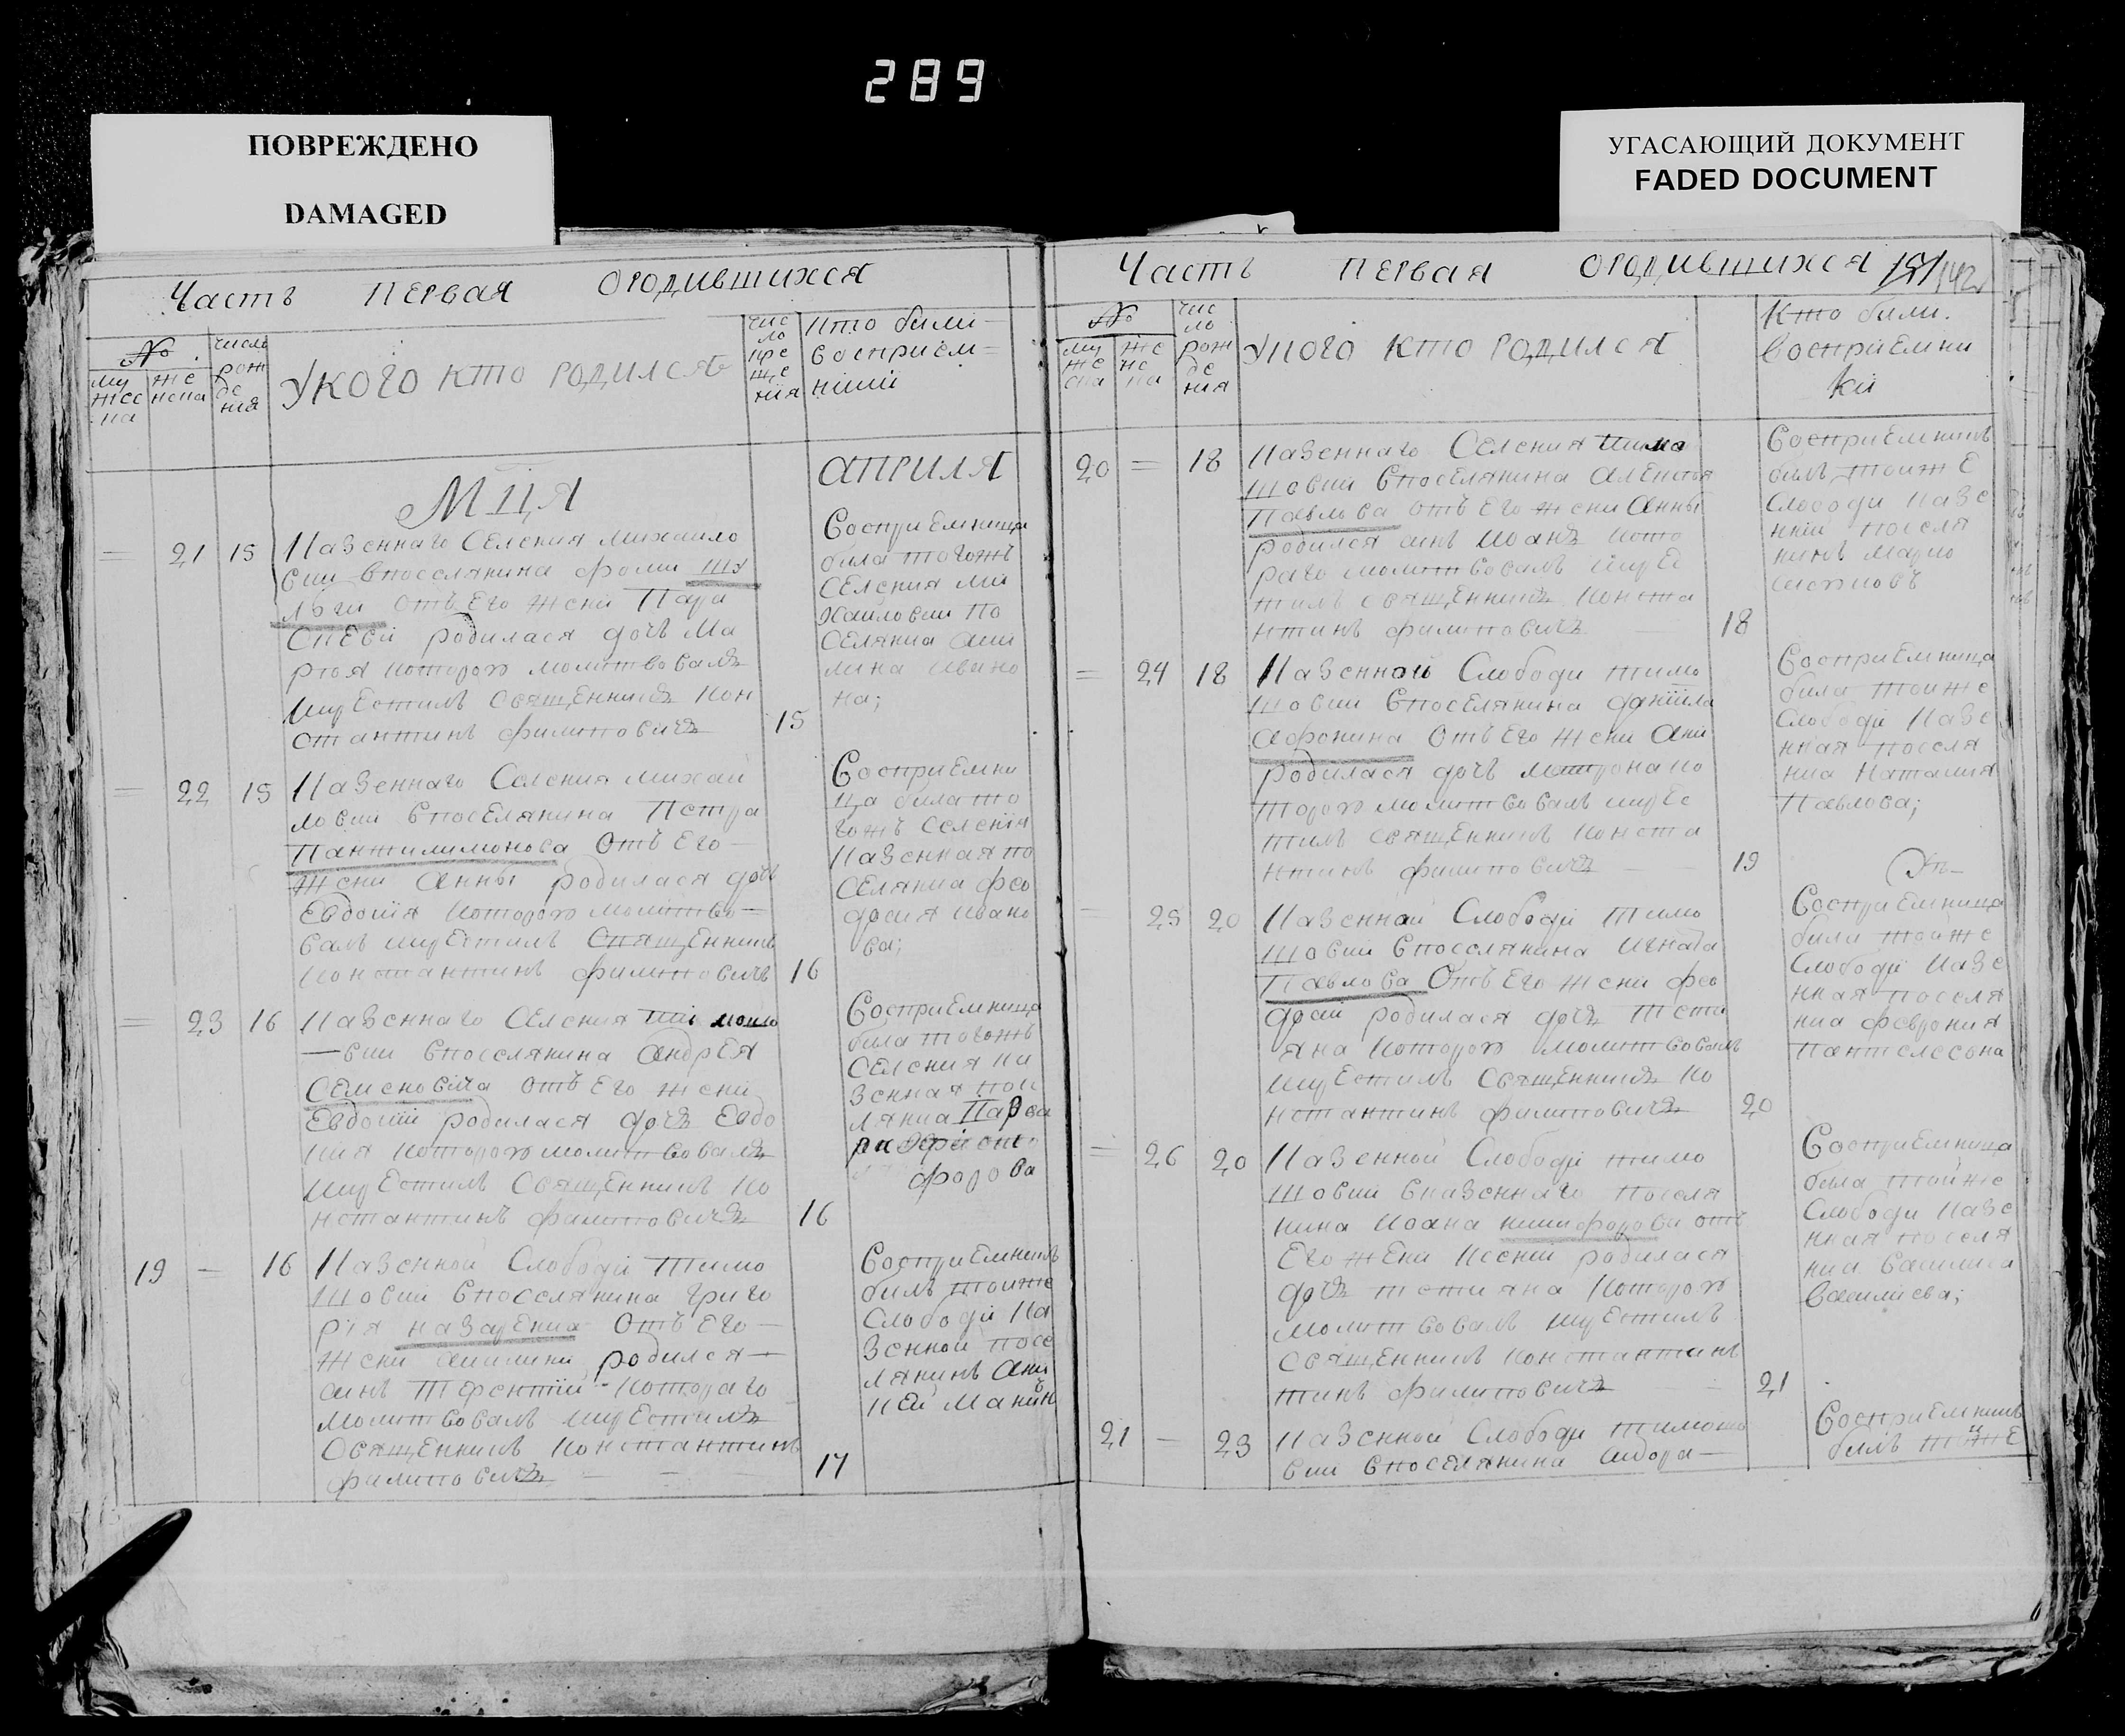 289
ПОВРЕЖДЕНО
DAMAGED
УГАСАЮЩИЙ ДОКУМЕНТ
FADED DOCUMENT
Часть первая ородившихся
№
му
жеска
женска
число
рож
де
ния
Укого кто родился
чис
ло
кре
ще
нія
Кто били
восприем=
ники
Мця
априля
= 21 15
Казеннаго Селения Михаило
вки впоселянина Фоми Шу
лги отъ Его жени Пара
скеви родилася дочъ Ма
рѳя которою молитвовалъ
икрЕстилъ СвящЕнникъ Кон
стантинъ филиповичъ
15
ВосприЕмница
била тогожъ
СЕления Ми
хайловки по
селянка Аки
лина Ивано
на;
= 22 15
Казеннаго Селения Михай
ловки впосЕлянина Петра
Пантилимонова Отъ Его
Жени Анны родилася дочъ
Евдокия Которою молитво=
валъ икрЕстилъ СвящЕнникъ
Константинъ филиповичъ
16
ВосприЕмни
ца била то
гожъ Селенія
Казенная по
СЕлянка фео
досия Ивано
ва;
= 23 16
Казеннаго СЕления Тимошо
вки впоселянина АндрЕя
Семеновича отъ Его жени
Евдокии родилася дочъ Евдо
кия Которою молитвовалъ
икрЕстилъ СвящЕнникъ Ко
нстантинъ филиповичъ
16
ВосприЕмница
била тогожъ
СЕления Ка
зенная посе
лянка
форова
19 — 16
Казенной Слободи Тимо
шовки впоселянина Григо
рія назаренка Отъ Его
Жени Акилини родился
синъ ТЕрентий Котораго
молитвовалъ икрЕстилъ
СвящЕнникъ Константинъ
филиповичъ
17
ВосприЕмникъ
билъ тойже
Слободи Ка
зенной посе
лянинъ Ани
кЕй Манин
Часть первая ородившихся 151/142
№
му
же
ска
же
нс
ка
чис
ло
рож
де
ния
Укого кто родился
Кто били.
восприЕмни
ки
20 = 18
Казеннаго СЕления Тимо
шовки впосЕлянина АлЕксѣя
Павлова отъ Его жени Анны
родился синъ Иоанъ кото
раго молитвовалъ икрЕс
тилъ свящЕнникъ Конста
нтинъ филиповичъ
18
ВосприЕмникъ
билъ тойжЕ
Слободи Казе
нний поселя
нинъ Марко
= 24 18
Казенной Слободи Тимо
шовки впосЕлянина данила
Афонина Отъ Его жени Ани
родилася дочъ Матрона ко
торою молитвовалъ икрЕс
тилъ свящЕнникъ Конста
нтинъ филиповичъ
19
ВосприЕмница
била тойже
Слободи Казе
нная поселя
нка Наталия
Павлова;
= 25 20
Казенной Слободи Тимо
шовки впоселянина Игната
Павлова Отъ Его жени фео
досии родилася дочъ Тети
яна Которою молитвовалъ
икрЕстилъ СвящЕнникъ Ко
нстантинъ филиповичъ
20
ВосприЕмница
била тойже
Слободи Казе
нная поселя
нка феврония
= 26 20
Казенной Слободи Тимо
шовки вказеннаго поселя
нина Иоана никифорова отъ
Его жЕни Ксении родилася
дочъ Тетияна Которою
молитвовалъ икрЕстилъ
СвящЕнникъ Константинъ
тинъ филиповичъ
21
ВосприЕмница
била тойже
Слободи Казе
нная поселя
нка Василиса
Василиева;
21 — 23
Казенной Слободи Тимошо
вки впосЕлянина Сидора
ВосприЕмникъ
билъ тойжЕ